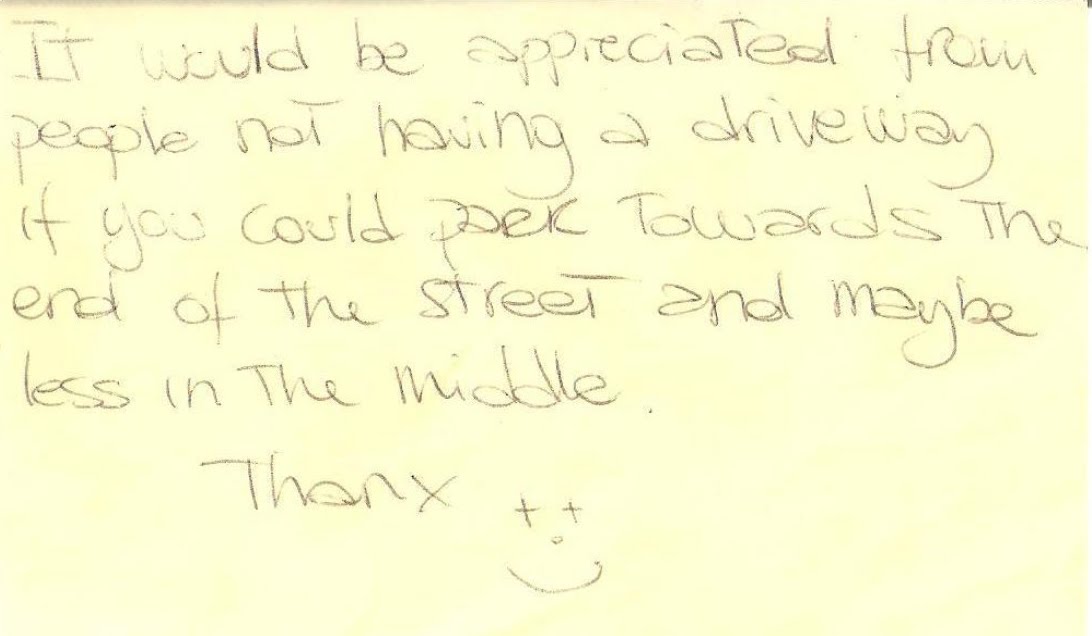 It would be appreciated from
people not having a driveway
if you could park Towards The
end of the street and maybe
less in The middle.
Thanx